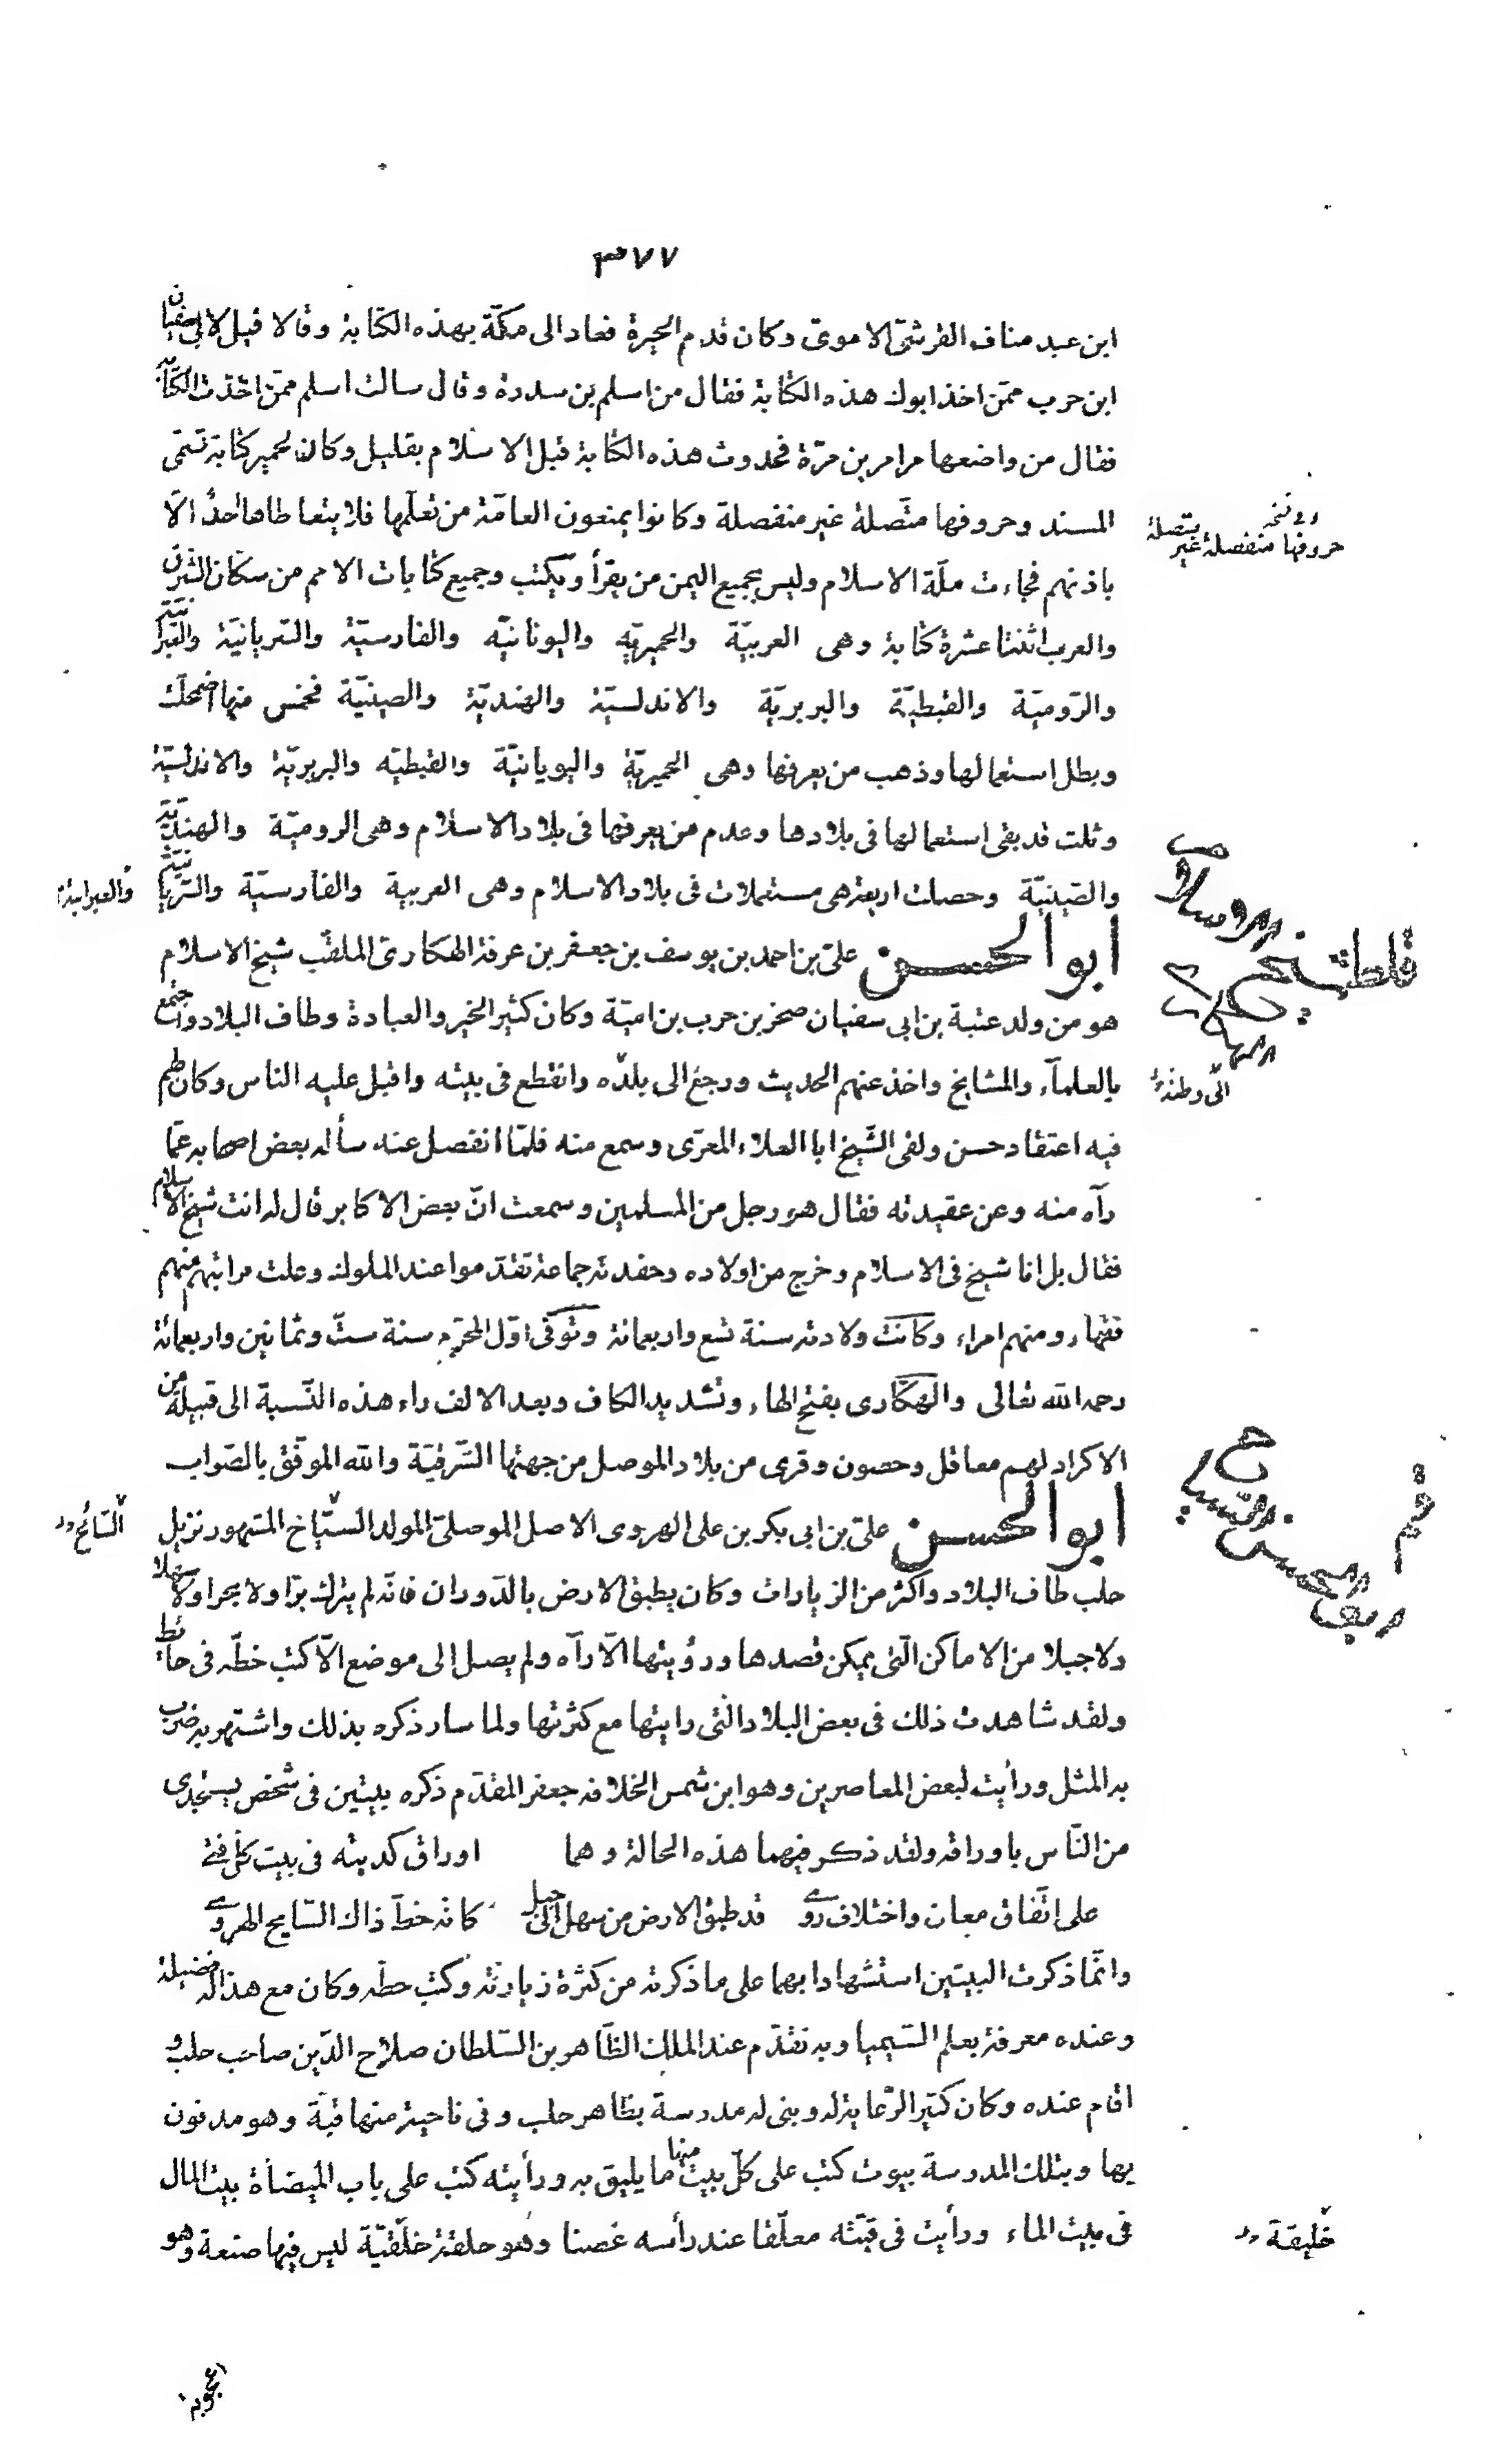 ٣٧٧
ابن عبد مناف القرشىّ الاموىّ وكان قدم الحيرة فعاد الى مكّة بهذه الكتابة وقالا قيل لابى سفيان
ابن حرب ممّن اخذ ابوك هذه الكتابة فقال من اسلم بن سدرة وقال سالت اسلم ممّن اخذت الكتابة
فقال من واضعها مرامر بن مرّة فحدوث هذه الكتابة قبل الاسلام بقليل وكان لحمير كتابة تسمّى
المسند وحروفها متّصلة غير منفصلة وكانوا يمنعون العامّة من تعلّمها فلا يتعاطاها احدٌ الّا
وفى نسخه
حروفها منفصلة غير متصلة
باذنهم فجاءت ملّة الاسلام وليس بجميع اليمن من يقرأ ويكتب وجميع كتابات الامم من سكّان الشرق
والعرب اثنتا عشرة كتابة وهى العربيّة والحميريّه واليونانيّه والفارسيّة والسريانيّة والعبرانيّة
والرّوميّة والقبطيّة والبربريّة والاندلسيّة والهنديّة والصينيّة فخمس منها اضمحلّت
وبطل استعمالها وذهب من يعرفها وهى الحميريّة واليويانيّة والقبطيّه والبربريّة والاندلسيّة
وثلث قد بقى استعمالها فى بلادها وعدم من يعرفها فى بلاد الاسلام وهى الروميّة والهنديّة
والصّينيّة وحصلت اربعة هى مستعملات فى بلاد الاسلام وهى العربية والفارسيّة والسّريانيّة
والعبرانية
ابو الحسن علىّ بن احمد بن يوسف بن جعفر بن عرفة الهكارىّ الملقّب شيخ الاسلام
شيخ الاسلام
هو من ولد عتبة بن ابى سفيان صخر بن حرب بن اميّة وكان كثير الخير والعبادة وطاف البلاد واجتمع
بالعلماء والمشايخ واخذ عنهم الحديث ورجع الى بلده وانقطع فى بيته واقبل عليه الناس وكان لهم
الى وطنه
فيه اعتقاد حسن ولقى الشّيخ ابا العلاء المعرّى وسمع منه فلمّا انفصل عنه سأله بعض اصحابه عمّا
رآه منه وعن عقيدته فقال هو رجل من المسلمين وسمعت انّ بعض الاكابر قال له انت شيخ الاسلام
فقال بل انا شيخ فى الاسلام وخرج من اولاده وحفدته جماعة تقدّموا عند الملوك وعلت مراتبهم منهم
فقهاء ومنهم امراء وكانت ولادته سنة تسع واربعمائة وتوفّى اوّل المحرّم سنة ستّ وثمانين واربعمائة
رحمه الله تعالى والهكّارى بفتح الهاء وتشديد الكاف وبعد الالف راء هذه النّسبة الى قبيلة من
الاكراد لهم معاقل وحصون وقرى من بلاد الموصل من جهتها الشّرقيّة والله الموفّق بالصّواب
ابو الحسن علىّ بن ابى بكر بن على الهروى الاصل الموصلىّ المولد السيّاح المشهور نزيل
السّائح
حلب طاف البلاد واكثر من الزيارات وكان يطبق الارض بالدّوران فانّه لم يترك برّا ولا بحرا ولا سهلا
ولا جبلا من الاماكن الّتى يمكن قصدها ورؤيتها الّا رآه ولم يصل الى موضع الّا كتب خطّه فى حائط
ولقد شاهدت ذلك فى بعض البلاد الّتى رايتها مع كثرتها ولما سار ذكره بذلك واشتهر به ضرب
به المثل ورأيت لبعض المعاصرين وهو ابن شمس الخلافة جعفر المقدّم ذكره بيتين فى شخص يستجدى
من النّاس باوراقه ولقد ذكر فيهما هذه الحالة وهما اوراق كديته فى بيت كلّ فتى
على اتّفاق معان واختلاف روى قد طبق الارض من سهل الى جبل كانّه خطّ ذاك السّايح الهروى
وانّما ذكرت البيتين استشهادا بهما على ما ذكرته من كثرة زيارته وكتب خطّه وكان مع هذا له فضيلة
وعنده معرفة بعلم السّيميا وبه تقدّم عند الملك الظّاهر بن السّلطان صلاح الدّين صاحب حلب و
اقام عنده وكان كثير الرّعاية له وبنى له مدرسة بظاهر حلب وفى ناحية منها قبّة وهو مدفون
بها وبتلك المدرسة بيوت كتب على كلّ بيت منها ما يليق به ورأيته كتب على باب الميضأة بيت المال
فى بيت الماء ورأيت فى قبّته معلّقا عند رأسه غصنا وهو حلقة خلّقيّة ليس فيها صنعة وهو
خليقة